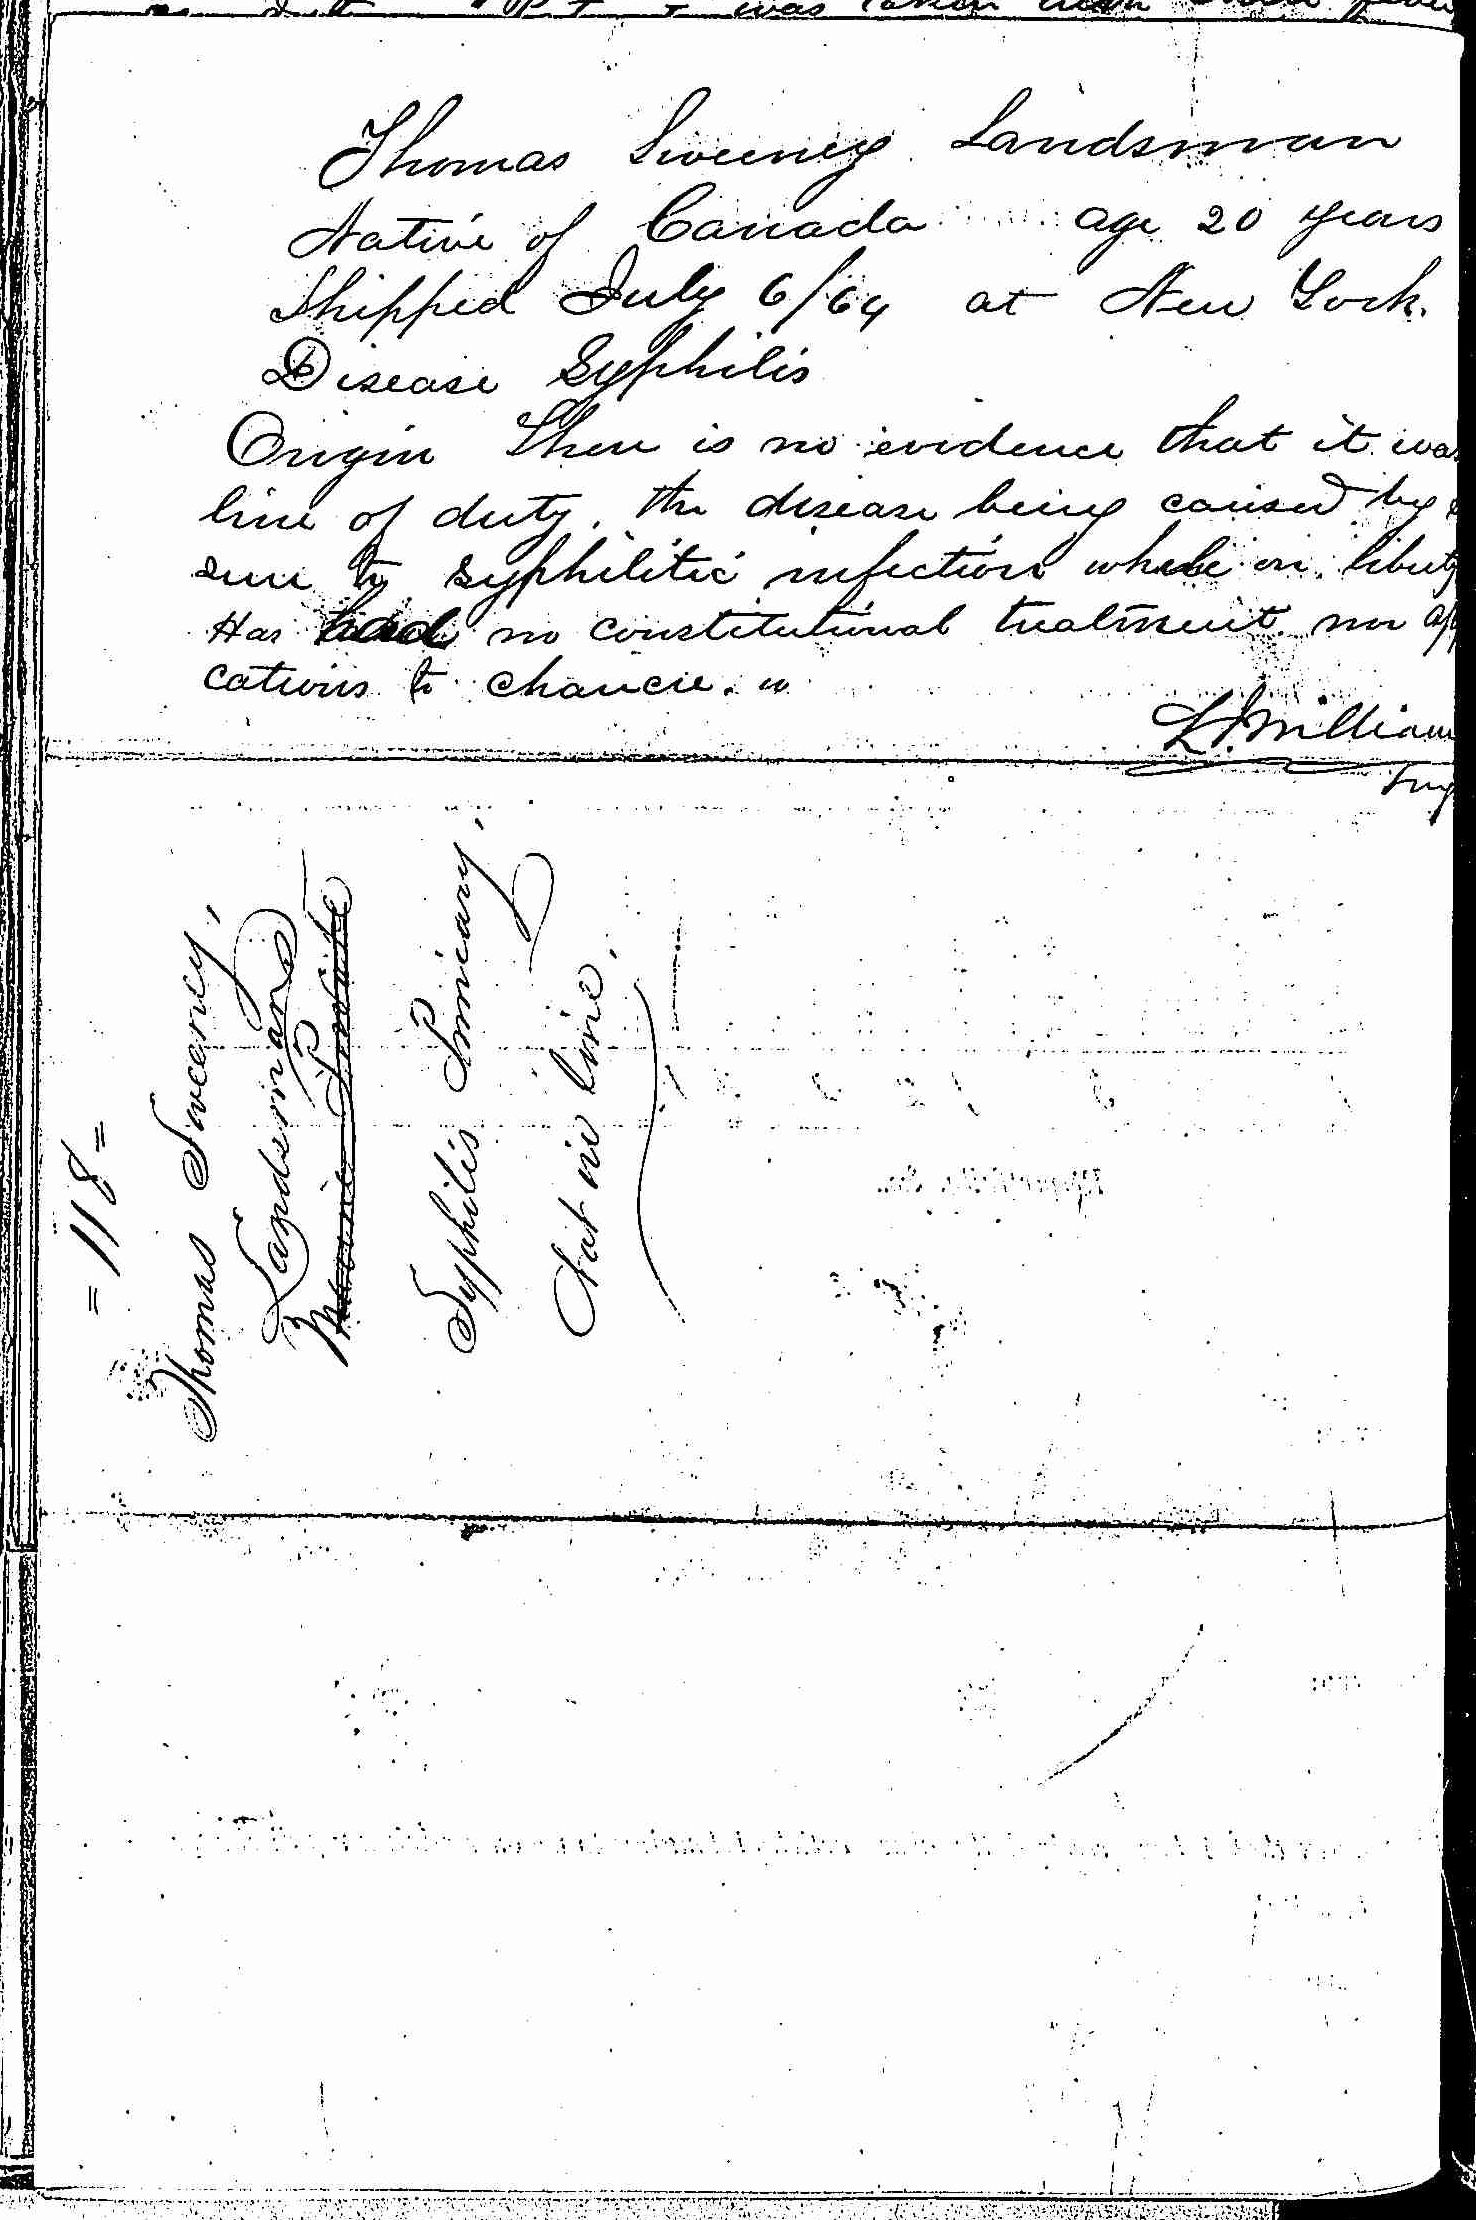 was taken with
Thomas Sweeney Landsman
Native of Canada age 20 years
Shipped July 6/64 at New York.
Disease Syphilis
Origin There is no evidence that it was
line of duty. the disease being caused by
sure to syphilitic infection while on liberty
Has had no constitutional treatment nor app
cations to chancre.
L. J. William
Surg
= 118 =
Thomas Sweeney,
Landsman
Marine Private
Syphilis Primary,
Not in line.